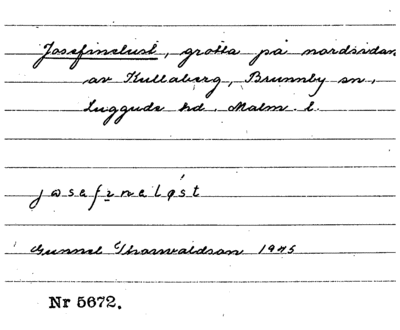 Josefinelust, grotta på nordsidan
av Kullaberg, Brunnby sn,
Luggude hd. Malm. l.
josefinelǿst
Gunnel Thorwaldson 1975
Nr 5672.